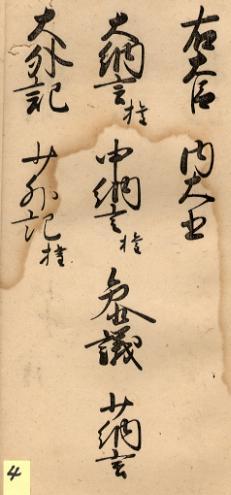 右大臣 内大臣
大納言権 中納言権 参議 少納言
大外記 少外記権
4